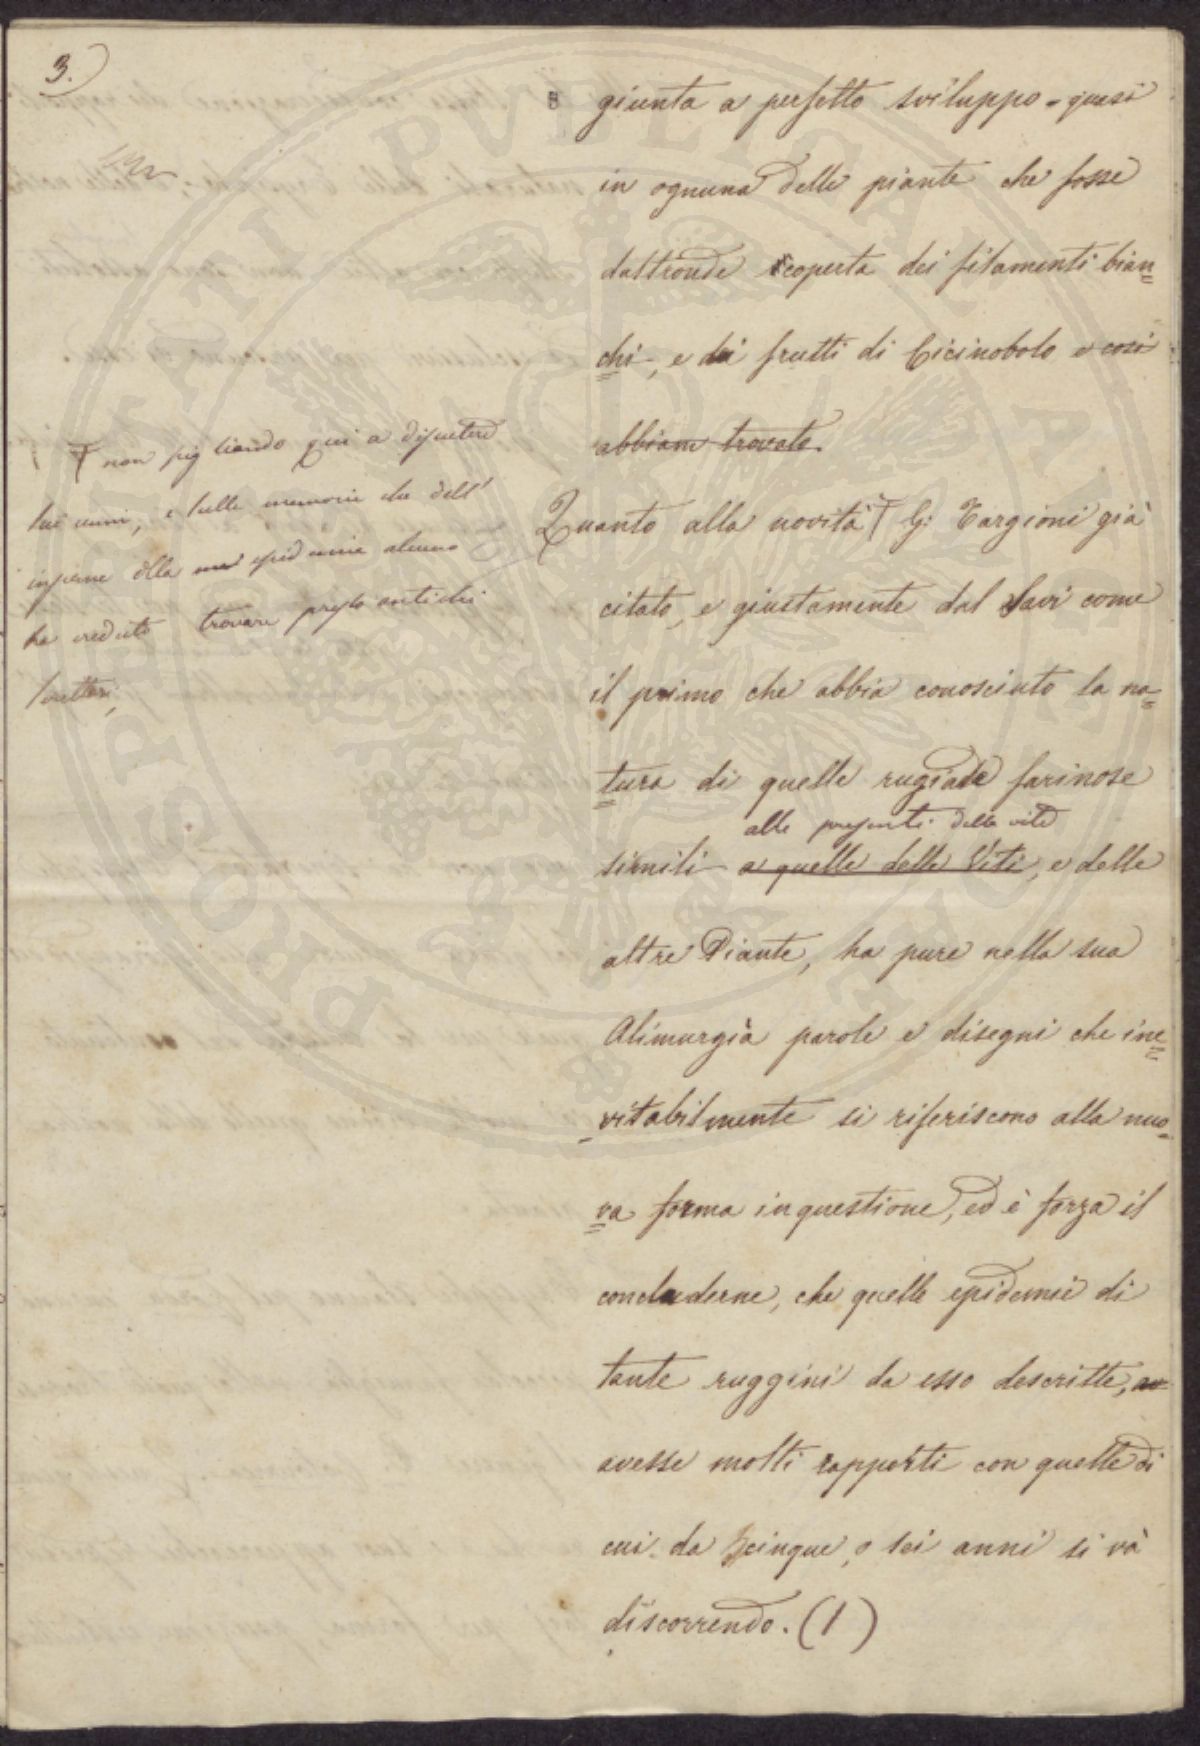 3.)
giunta a perfetto sviluppo - quasi
in ognuna delle piante che fosse
daltronde scoperta dei filamenti bian=
chi, e dei frutti di Cicinobolo e cosi
abbiam trovato.
Quanto alla novità Ŧ G: Targioni già
citato, e giustamente dal Savi come
il primo che abbia conosciuto la na=
tura di quelle rugiade farinose
alle presenti della vite
simili a quelle delle Viti, e delle
altre Piante, ha pure nella sua
Alimurgia parole e disegni che ine=
vitabilmente si riferiscono alla nuo=
va forma in questione, ed è forza il
concluderne, che quelle epidemie di
tante ruggini da esso descritte, av
avesse molti rapporti con quelle di
cui da cinque, o sei anni si và
discorrendo. (1)
Ŧ non pigliando qui a discutere
sui cenni, e sulle memorie che dell'
insieme della epidemia alcuno
ha creduto trovare presso antichi
scrittori,